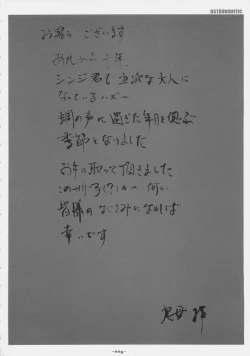 ASTROMANTIC
お暑う ございます
あれから 十年
シンジ君も 立派な大人に
なっているハズ…
蜩の声に過ぎた年月を偲ぶ
季節となりました
お手に取って頂きました
この
皆様の なぐさみになれば
幸いです